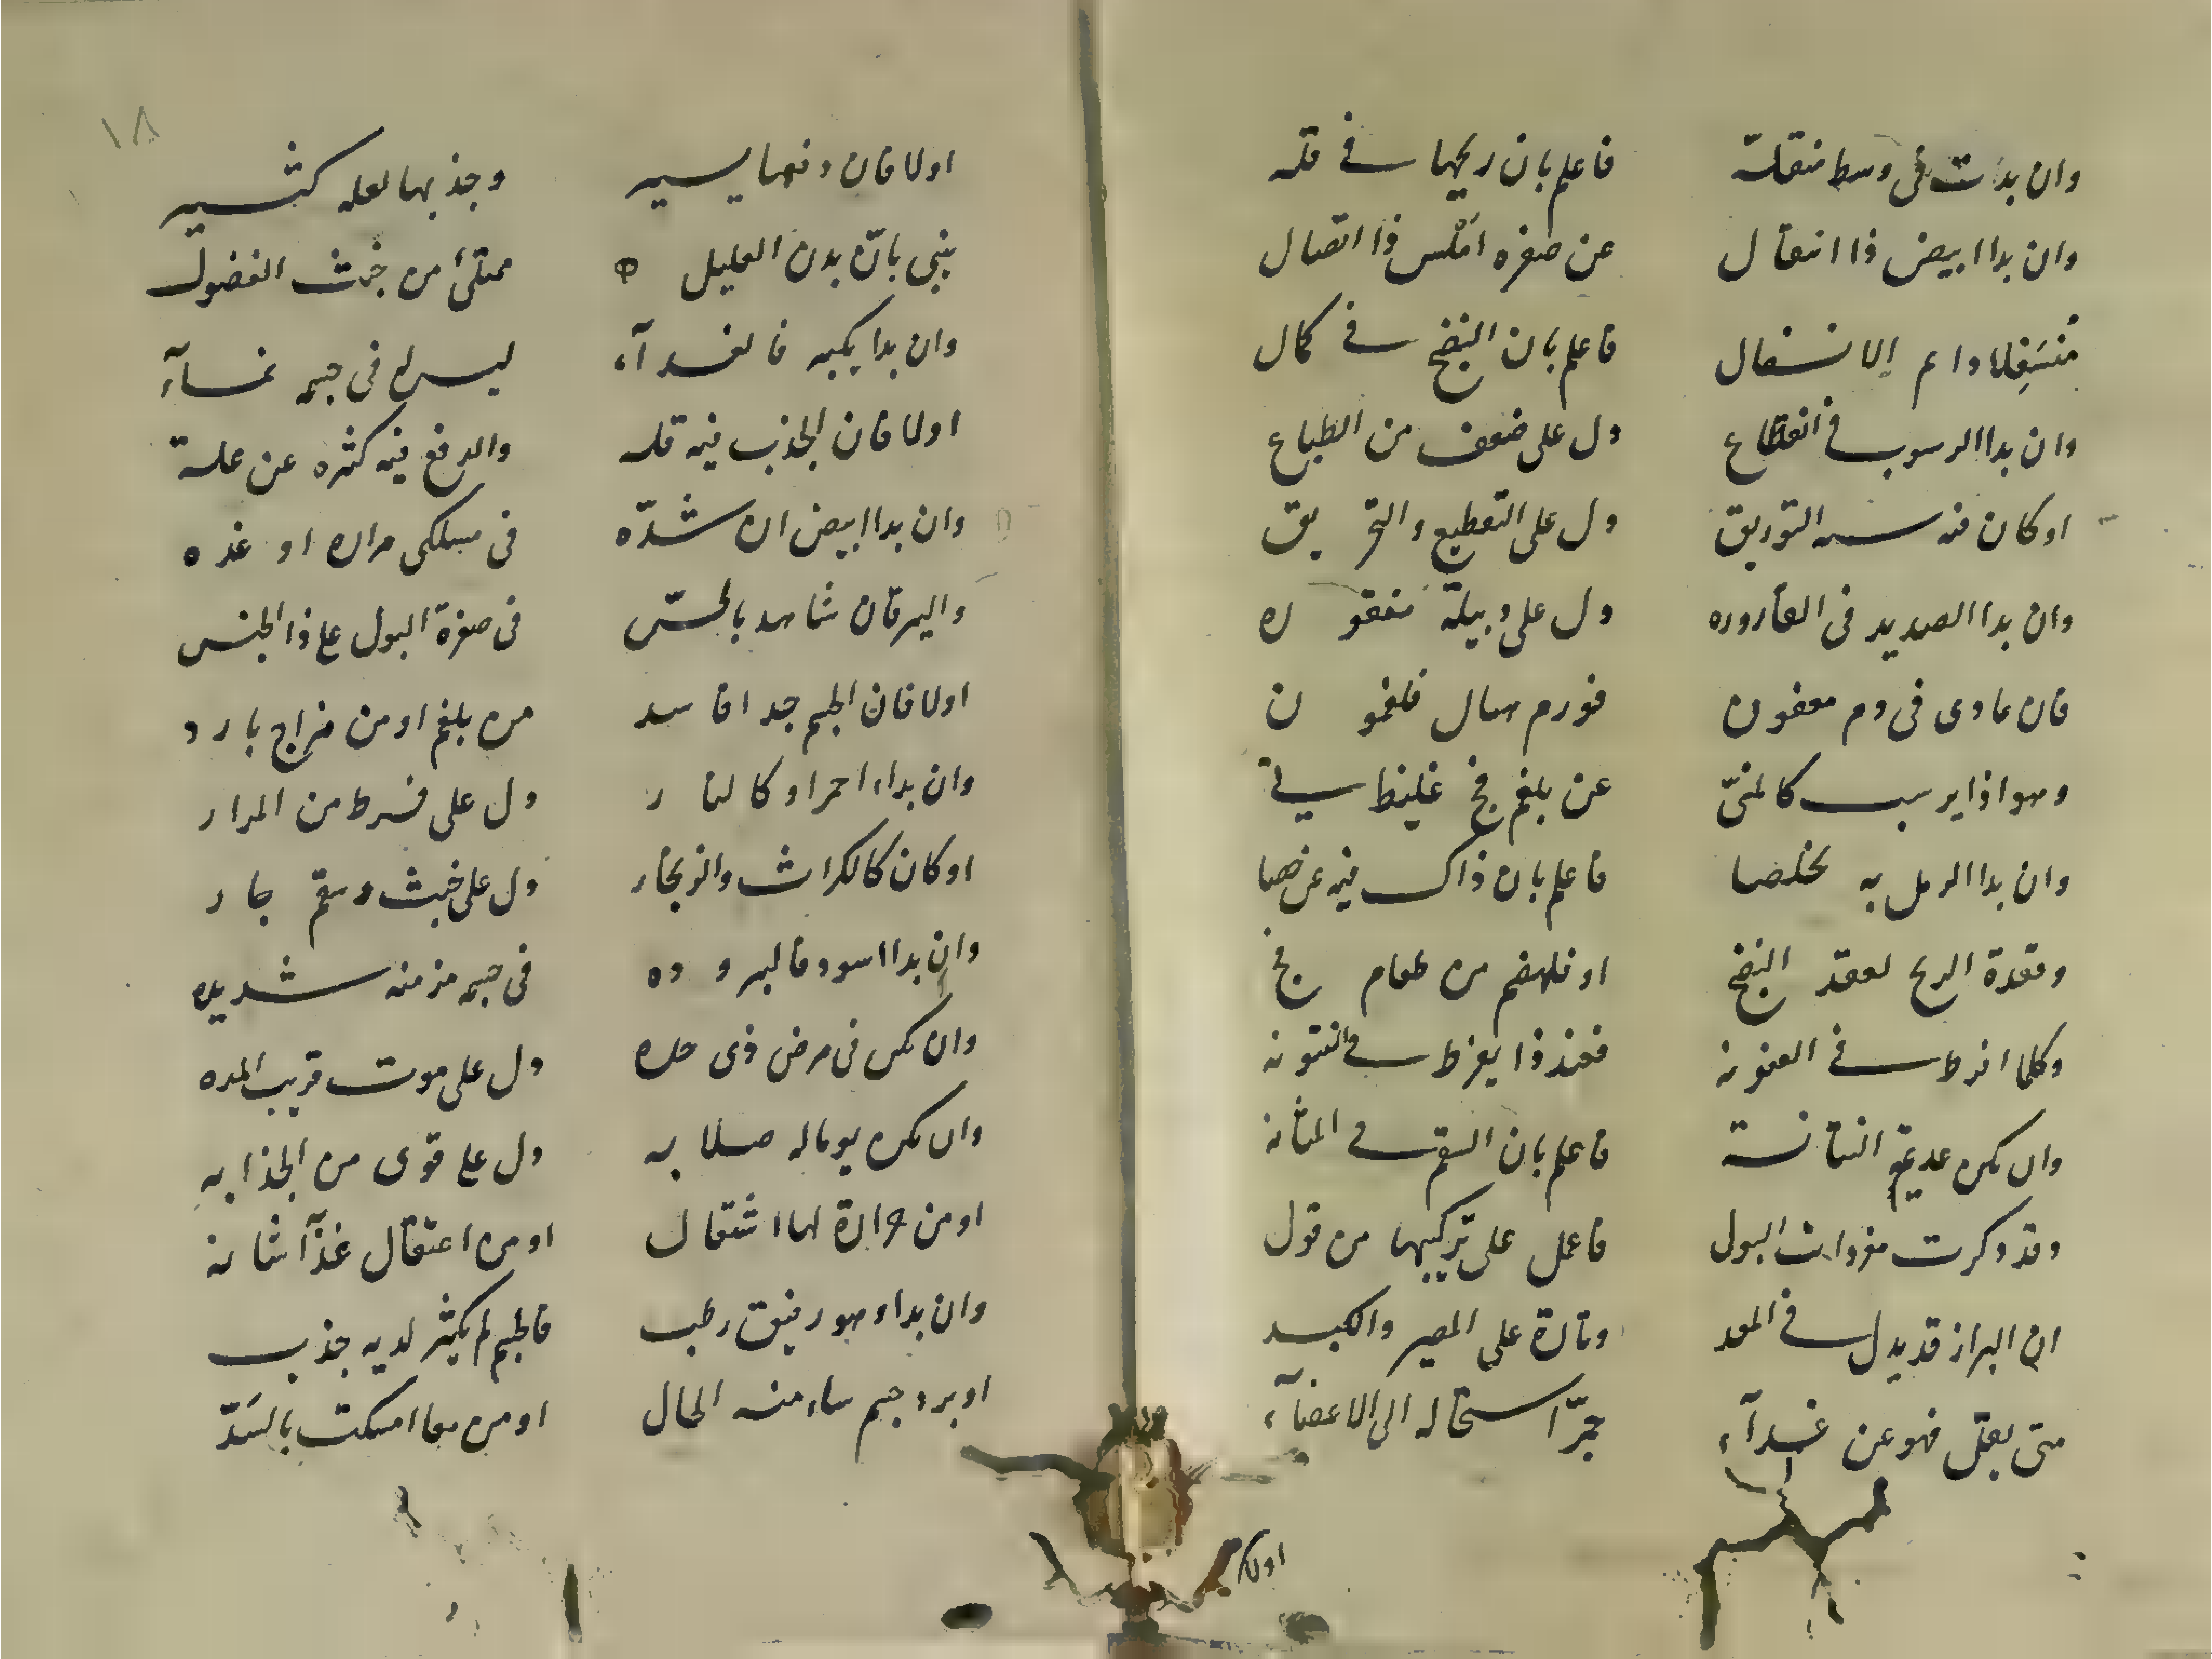 وان بدات في وسط منقله فاعلم بان ريحها في قله
وان بدا ابيض ذا انتقال عن صفره املس ذا اتصال
مُنسَفِلا دايم الانسفال فاعلم بان النضج في كمال
وان بدا الرسوب في انقطاع دل على ضعف من الطباع
او كان منه التوريق دل على التقطيع والتحريق
وان بدا الصديد في القاروره دل على دبيلة منفقوره
فان عادى في دم معفون فورم سال فلغمون
وهو اذا يرسب كالمنيّ عن بلغم فج غليظ ني
وان بدا الرمل به تخلصا فاعلم بان ذاك فيه عن حصا
وفقدة الريح لفقد النضج او فلهضم من طعام فج
وكلما افرط في العفونه فعند ذا يفرط في النتونه
وان يكن عديمة النتانة فاعلم بان السقم في المثانه
وقد ذكرت مفردات البول فاعمل على تركيبها من قول
ان البراز قد يدل في المعد وتارة على المصير والكبد
متى يقل فهو عن غدآء جرّا استحاله الى الاعضآء
اولا
١٨
اولا فان دفعها يسير وجذبها لعله كثير
ينبي بانّ بدن العليل ممتلئ من خبث الفضول
وان بدا بكميه فالغدآء ليس له في جسمه نمآء
اولا فان الجذب فيه قله والدفع فيه كثره عن علة
وان بدا ابيض ان شدّه في مسلكي مراره او غده
واليرقان شاهد بالحسّ في صفرة البول على ذا الجنس
اولا فان الجسم جدا فاسد من بلغم او من مزاج بارد
وان بدا احمر او كالنار دل على فرط من المرار
او كان كالكراث والزنجار دل على خبث وسقم جار
وان بدا اسود فالبروده في جسمه مزمنه شديده
وان يكن في مرض ذي حده دل على موت قريب المده
وان يكن يوما له صلابه دل على قوى من الجذابه
او من حرارة لها اشتعال او من اعتقال غذآ شانه
وان بدا وهو رقيق رطب فالجسم لم يكثر لديه جذب
او برد جسم ساء منه الحال او من معا امسكت بالسدّ